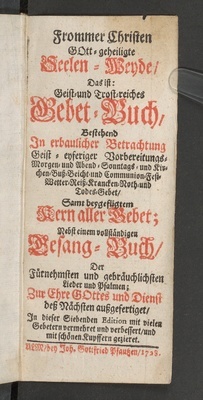 Frommer Christen
GOtt-geheiligte
Seelen-Weyde/
Das ist:
Geist-und Trost-reiches
Gebet-Buch/
Bestehend
In erbaulicher Betrachtung
Geist-eyferiger Vorbereitungs-
Morgen und Abend-Sonntags-und Kir-
chen-Buß-Beicht-und Communion-Fest-
Wetter-Reiß-Krancken-Noth-und
Todes-Gebet/
Samt beygefügtem
Kern aller Gebet;
Nebst einem vollständigen
Gesang-Buch/
Der
Fürnehmsten und gebräuchlichsten
Lieder und Psalmen;
Zur Ehre GOttes und Dienst
deß Nächsten außgefertiget/
In dieser Siebenden Edition mit vielen
Gebetern vermehret und verbessert/und
mit schönen Kupffern gezieret.
ULM/bey Joh. Gottfried Pfautzen/1728.